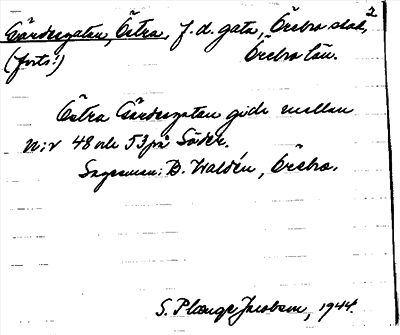 2
Gärdesgatan, Östra, f.d. gata, Örebro stad,
(forts.) Örebro län.
Östra Gärdesgatan gick mellan
n:r 48 och 53 på Söder.
Sagesman: B. Waldén, Örebro.
S. Plænge Jacobson, 1944.